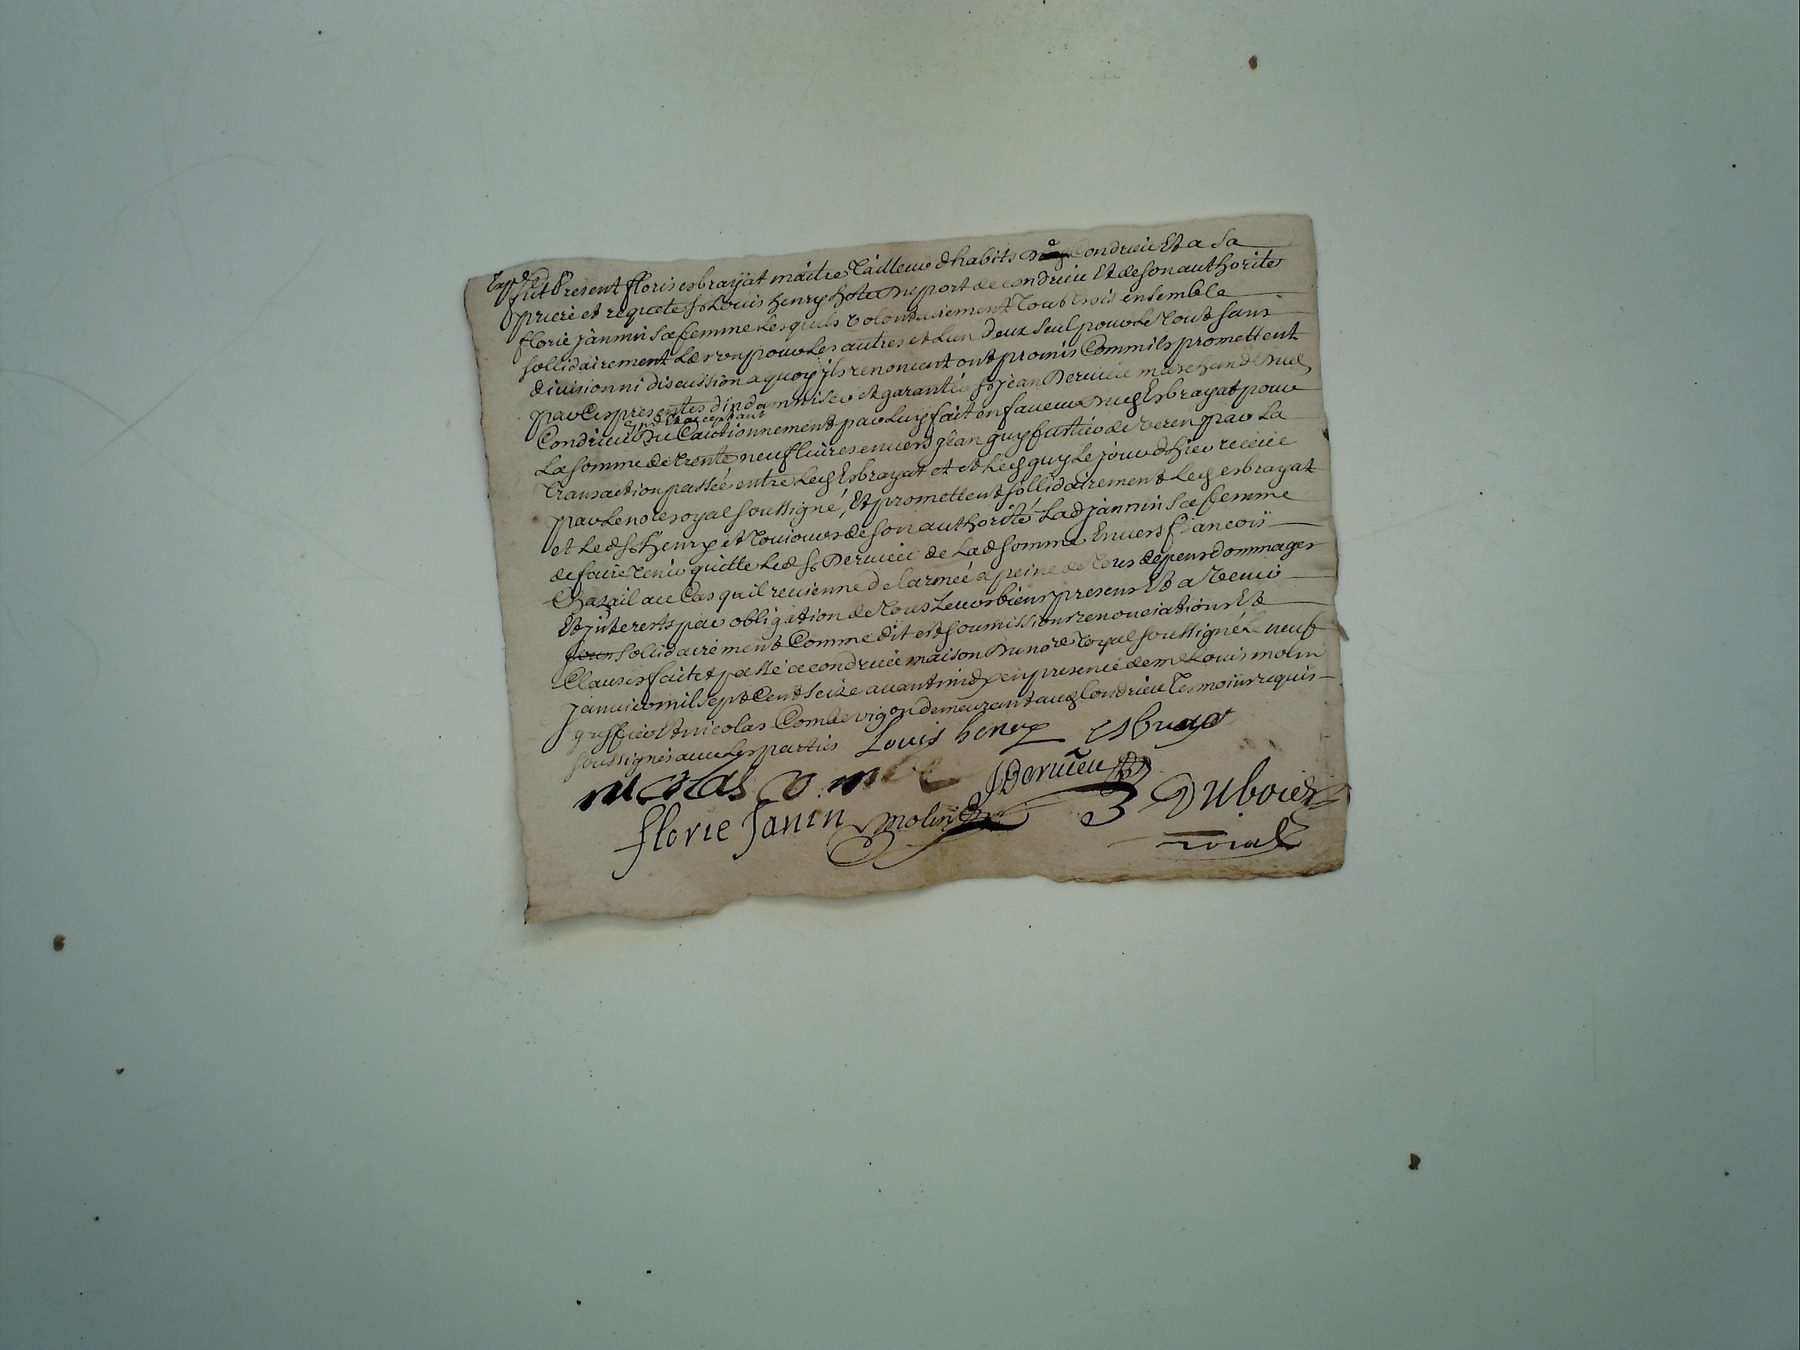 Expd
fut Present floris esbrayat maitre Tailleur d'habits de Condrieu Et a Sa
priere et requete sr Louis henry hote du port de condrieu Et de son authorite
florie jannin Sa femme Lesquels volontairement Tous trois ensemble
sollidairement L'un pour Les autres et L'un Deux Seul pour Le Tout sans
division ni discution a quoy ils renoncent ont promis Comm'ils promettent
par Ces presentes d'indamniser et garantir sr jean Dervieu marchand dud
Condrieu Du Cautionnement par Luy fait en faveur Dud Esbrayat pour
Lad Et acceptant
La somme de trente neuf livres envers jean guy fustier de veren par La
Transaction passée entre Led Esbrayat et et Led guy Le jour d'hier receue
par Le nore royal soussigné, Et promettent sollidairement Led esbrayat
et Led sr henry et Toujours de son authorité Lad jannin Sa femme
de faire Tenir quitte Led sr Dervieu de Lad somme Envers francois
Chazail au Cas qu'il revienne de l'armée a peine de Tous depens dommages
Et interests par obligation de Tous Leurs biens presens Et a Venir
sollidairement Comme dit est soumissions renonciations Et
Clauses fait et passé a condrieu maison Du nore royal soussigné Le neuf
Janvier mil sept Cent Seize avant midy en presence de me Louis molin
greffier Et nicolas Combe vigon demeurant aud Condrieu Tesmoins requis
soussignés avec Les parties Louis henry esbrayat
nicolas combe JDervieu
florie Janin molin Dubois
roial